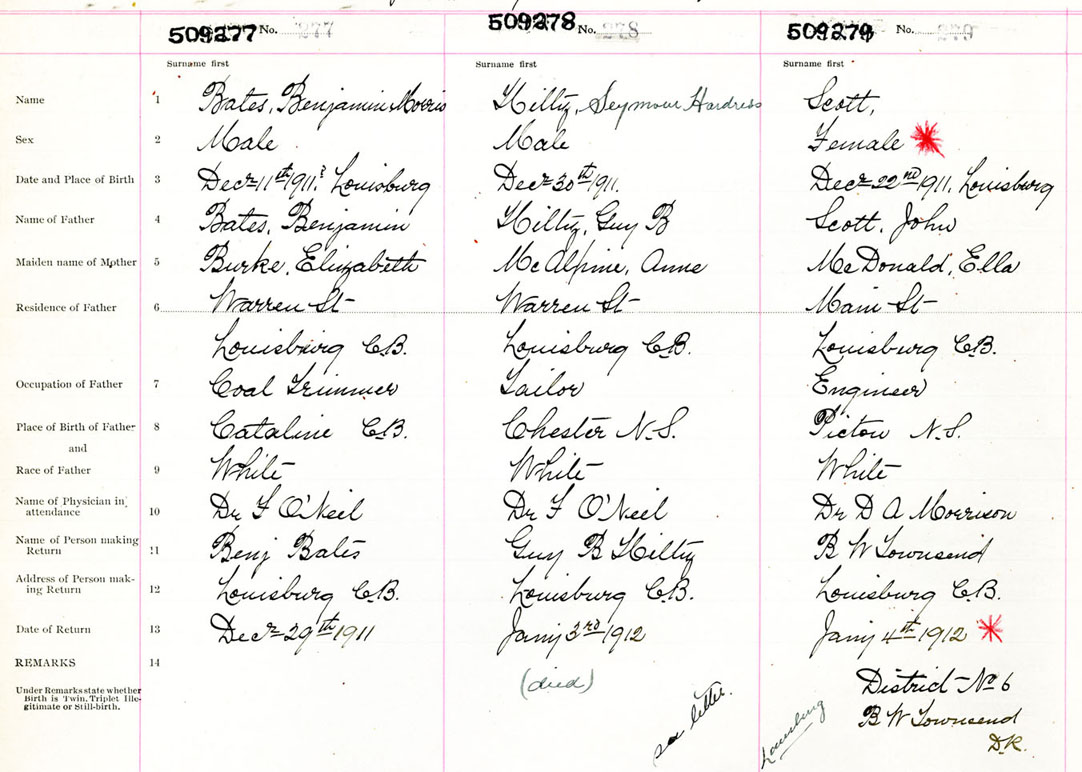 509277 No. 277 509278 No. 278 509279 No. 279
Surname first Surname first Surname first
Name 1 Bates, Benjamin Morris Hiltz, Seymour Hardress Scott,
Sex 2 Male Male Female
Date and Place of Birth 3 Decr 11th 1911. Louisburg Decr 30th 1911. Decr 22nd 1911, Louisburg
Name of Father 4 Bates, Benjamin Hiltz, Guy B Scott, John
Maiden name of Mother 5 Burke, Elizabeth McAlpine, Anne McDonald, Ella
Residence of Father 6 Warren St Warren St Main St
Louisburg C.B. Louisburg C.B. Louisburg C.B.
Occupation of Father 7 Coal Trimmer Tailor Engineer
Place of Birth of Father 8 Cataline C.B. Chester N.S. Pictou N.S.
and
Race of Father 9 White White White
Name of Physician in
attendance 10 Dr F O'Neil Dr F O'Neil Dr D A Morrison
Name of Person making
Return 11 Benj Bates Guy B Hiltz B W Townsend
Address of Person mak-
ing Return 12 Louisburg C.B. Louisburg C.B. Louisburg C.B.
Date of Return 13 Decr 29th 1911 Jany 3rd 1912 Jany 4th 1912
REMARKS 14
Under Remarks state whether
Birth is Twin, Triplet Ille-
gitimate or Still-birth.
(died)
see letter.
Louisburg
District No 6
B W Townsend
D.R.